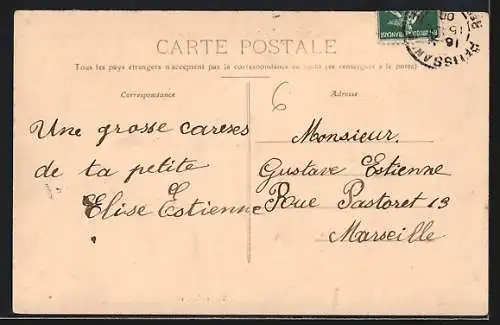 CARTE POSTALE
Tous les pays étrangers n'acceptent pas la correspondance au recto (se renseigner à la poste)
Correspondance
Adresse
6
Une grosse careses
de ta petite
Elise Estienne
Monsieur.
Gustave Estienne
Rue Pastoret 13
Marseille
16
15